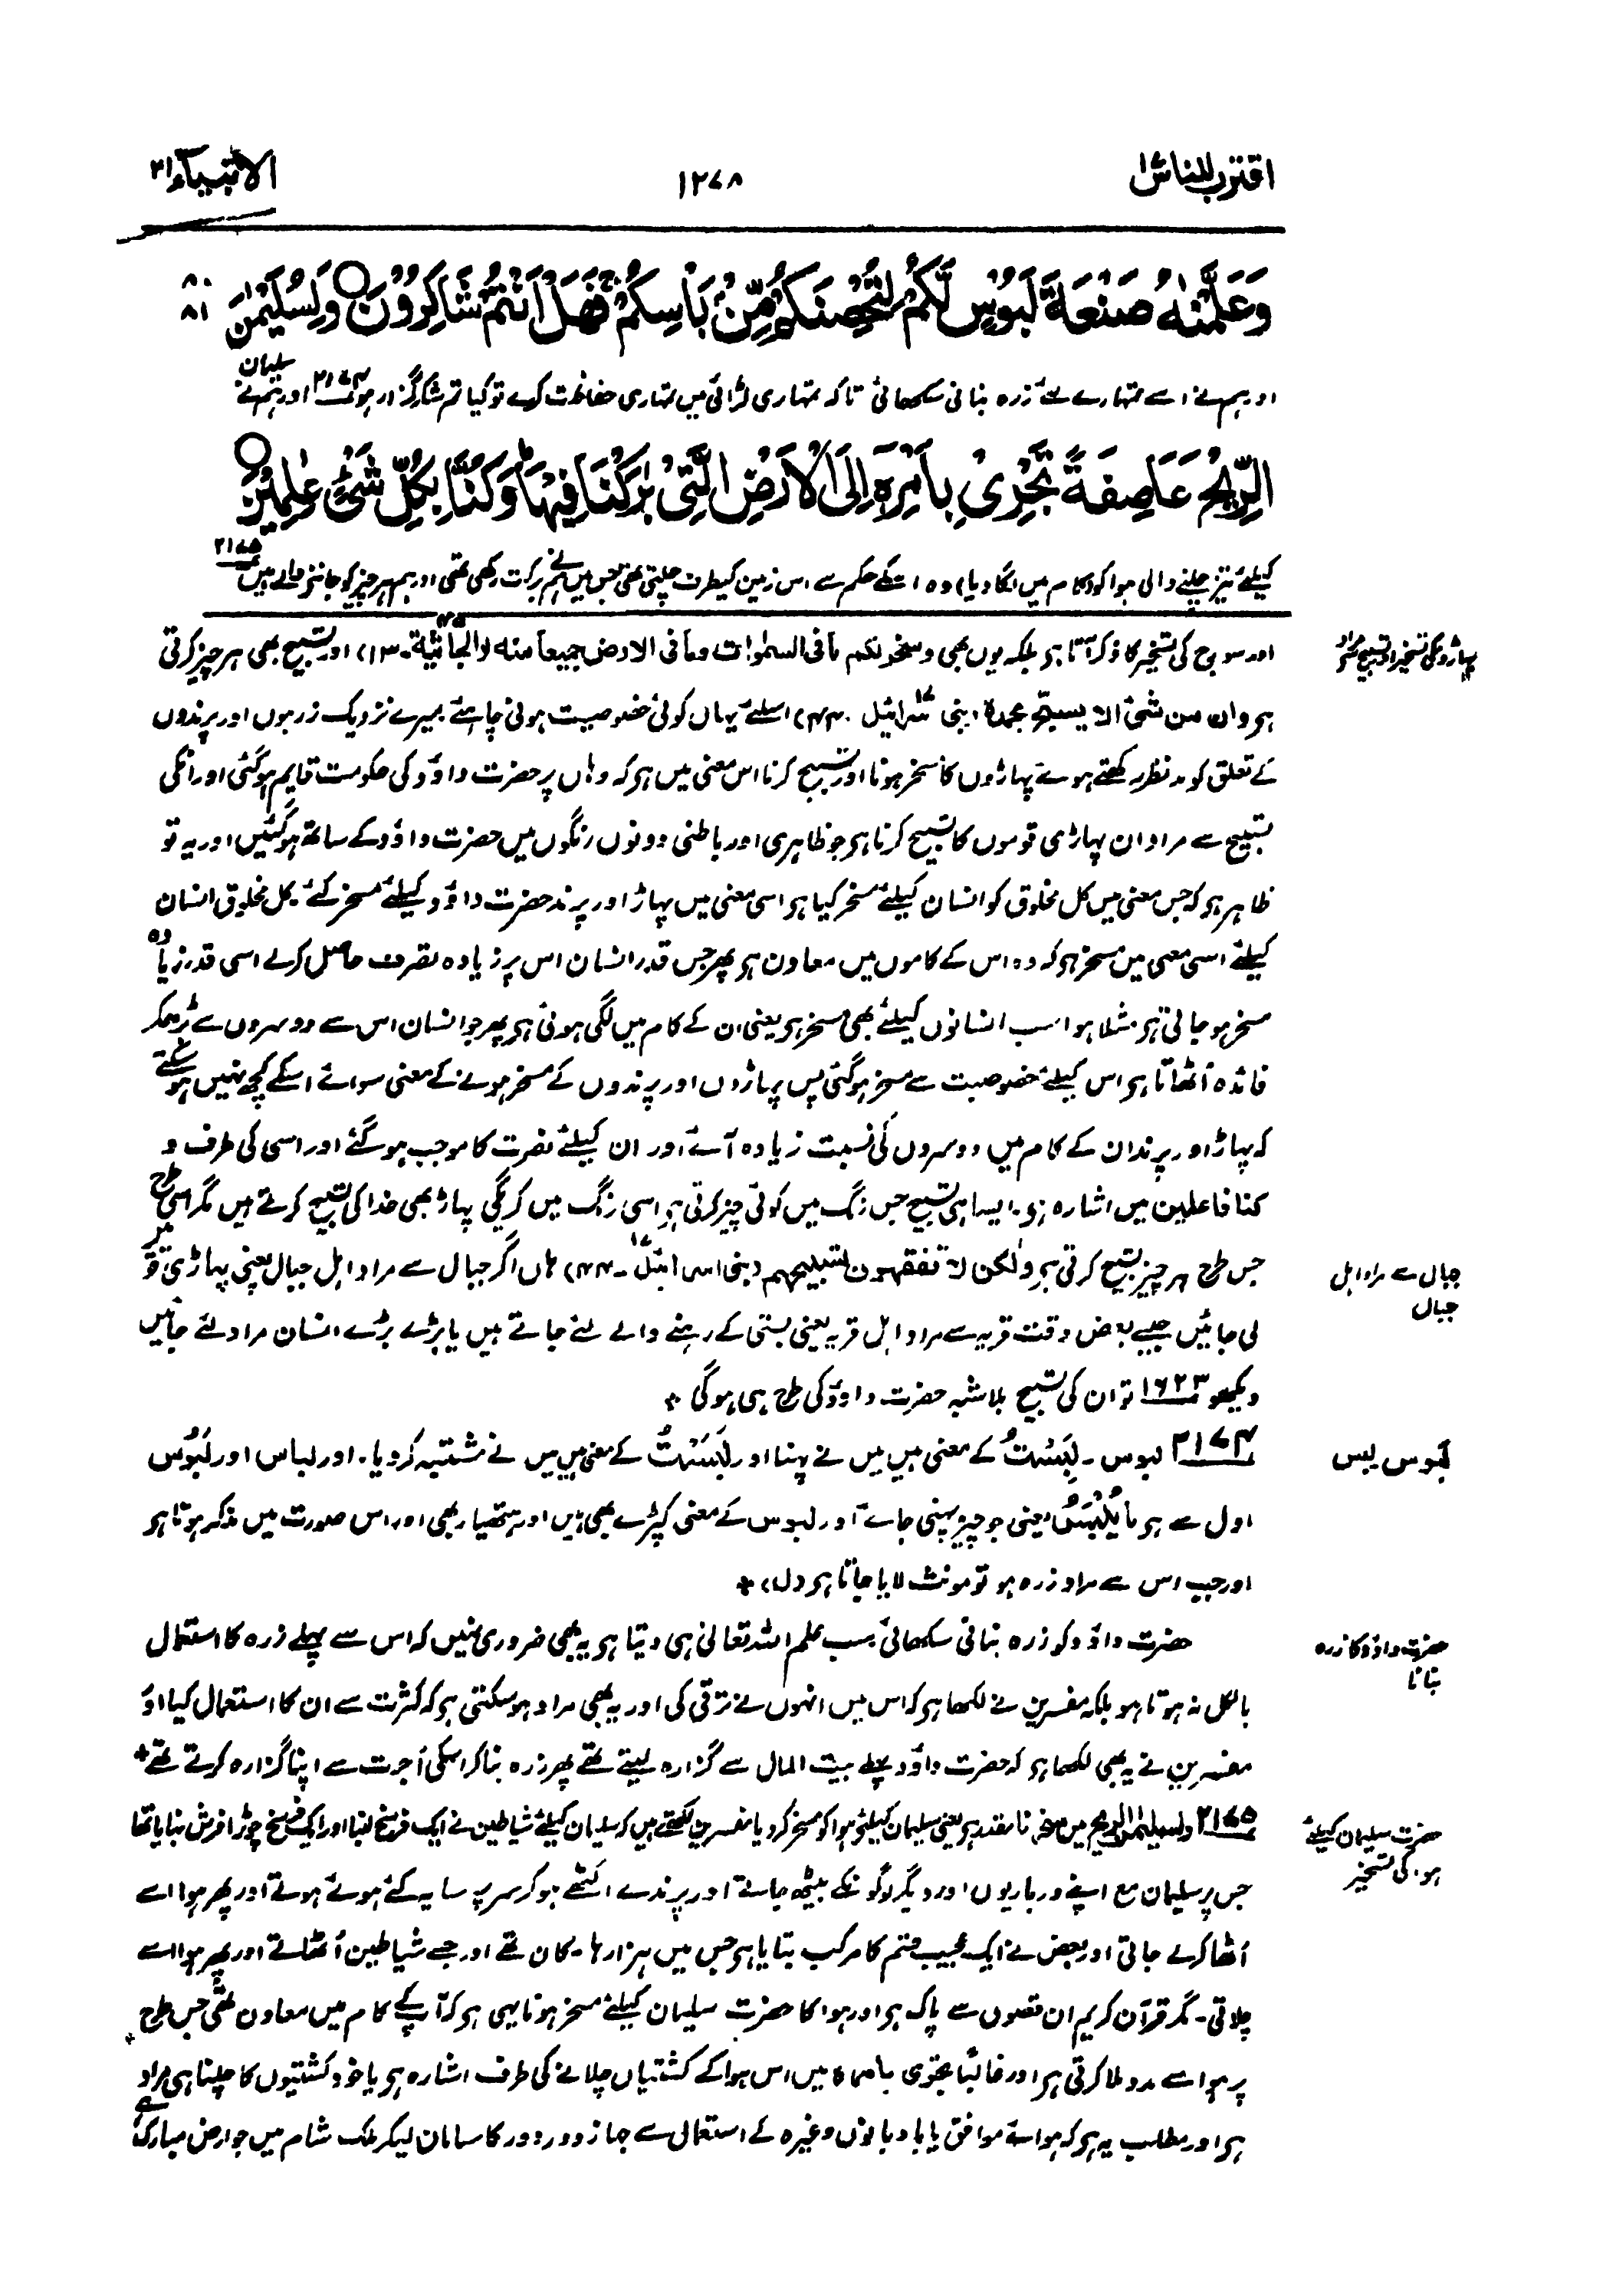 اقترب للناس ۱۷
۱۲۷۸
الانبیآء ۲۱
وَعَلَّمْنٰهُ صَنْعَةَ لَبُوْسٍ لَّكُمْ لِتُحْصِنَكُمْ مِّنْۢ بَاْسِكُمْ ۚ فَهَلْ اَنْتُمْ شَاكِرُوْنَ ○ وَلِسُلَيْمٰنَ
۸۰
۸۱
اور ہم نے اسے تمہارے لئے زرہ بنانی سکھائی تاکہ تمہاری لڑائی میں تمہاری حفاظت کرے تو کیا تم شکرگزار ہو ۲۱۷۴ اور ہم نے سلیمان
الرِّيْحَ عَاصِفَةً تَجْرِىْ بِاَمْرِهٖٓ اِلَى الْاَرْضِ الَّتِىْ بٰرَكْنَا فِيْهَا ؕ وَكُنَّا بِكُلِّ شَىْءٍ عٰلِمِيْنَ ○
کیلئے تیز چلنے والی ہوا کو (کام میں لگا دیا) وہ اسکے حکم سے اس زمین کیطرف چلتی تھی جس میں ہم نے برکت رکھی تھی اور ہم ہر چیز کو جاننے والے ہیں ۲۱۷۵
اور سورج کی تسخیر کا ذکر آتا ہو بلکہ یوں بھی وسخر لکم ما فی السمٰوات وما فی الارض جمیعا منہ (الجاثیۃ ۴۵۔ ۱۳) اور تسبیح بھی ہر چیز کرتی
ہو وان من شیٔ الا یسبح بحمدہ (بنی اسرائیل ۱۷۔ ۴۴) اسلئے یہاں کوئی خصوصیت ہونی چاہئے۔ میرے نزدیک زرہوں اور پرندوں
کے تعلق کو مدنظر رکھتے ہوئے پہاڑوں کا مسخر ہونا اور تسبیح کرنا اس معنی میں ہو کہ وہاں پر حضرت داؤد کی حکومت قایم ہو گئی اور انکی
تسبیح سے مراد ان پہاڑی قوموں کا تسبیح کرنا ہو جو ظاہری اور باطنی دونوں رنگوں میں حضرت داؤد کے ساتھ ہو گئیں اور یہ تو
ظاہر ہو کہ جس معنی میں کل مخلوق کو انسان کیلئے مسخر کیا ہو اسی معنی میں پہاڑ اور پرند حضرت داؤد کیلئے مسخر کئے۔ کل مخلوق انسان
کیلئے اسی معنی میں مسخر ہو کہ وہ اس کے کاموں میں معاون ہو پھر جس قدر انسان اس پر زیادہ تصرف حاصل کرلے اسی قدر زیادہ
مسخر ہو جاتی ہو۔ مثلا ہوا سب انسانوں کیلئے بھی مسخر ہو یعنی ان کے کام میں لگی ہوئی ہو پھر جو انسان اس سے دوسروں سے بڑھکر
فائدہ اُٹھاتا ہو اس کیلئے خصوصیت سے مسخر ہو گئی پس پہاڑوں اور پرندوں کے مسخر ہونے کے معنی سوائے اسکے کچھ نہیں ہو سکتے
کہ پہاڑ اور پرند ان کے کام میں دوسروں کی نسبت زیادہ آئے اور ان کیلئے نصرت کا موجب ہو گئے اور اسی کی طرف و
کنا فاعلین میں اشارہ ہو۔ ایسا ہی تسبیح جس رنگ میں کوئی چیز کرتی ہو اسی رنگ میں کریگی پہاڑ بھی خدا کی تسبیح کرتے ہیں مگر اسی طرح
جس طرح ہر چیز تسبیح کرتی ہو ولٰکن لا تفقہون تسبیحہم (بنی اسرائیل ۱۷۔ ۴۴) ہاں اگر جبال سے مراد اہل جبال یعنی پہاڑی قومیں
لی جائیں جیسے بعض وقت قریہ سے مراد اہل قریہ یعنی بستی کے رہنے والے لئے جاتے ہیں یا بڑے بڑے انسان مراد لئے جائیں
دیکھو ۱۶۲۳ تو ان کی تسبیح بلاشبہ حضرت داؤد کی طرح ہی ہو گی +
۲۱۷۴ لبوس۔ لَبِسْتُ کے معنی ہیں میں نے پہنا اور لَبَسْتُ کے معنی ہیں میں نے مشتبہ کر دیا۔ اور لباس اور لَبُوس
اول سے ہو مَا یُلْبَسُ یعنی جو چیز پہنی جائے اور لبوس کے معنی کپڑے بھی ہیں اور ہتھیار بھی اور اس صورت میں مذکر ہوتا ہو
اور جب اس سے مراد زرہ ہو تو مونث لایا جاتا ہو (ل) +
حضرت داؤد کو زرہ بنانی سکھائی۔ سب علم اللہ تعالیٰ ہی دیتا ہو یہ بھی ضروری نہیں کہ اس سے پہلے زرہ کا استعمال
بالکل نہ ہوتا ہو بلکہ مفسرین نے لکھا ہو کہ اس میں انہوں نے ترقی کی اور یہ بھی مراد ہو سکتی ہو کہ کثرت سے ان کا استعمال کیا اور
مفسرین نے یہ بھی لکھا ہو کہ حضرت داؤد پہلے بیت المال سے گزارہ لیتے تھے پھر زرہ بنا کر اسکی اُجرت سے اپنا گزارہ کرتے تھے +
۲۱۷۵ ولسلیمٰن الریح میں سخرنا مقدر ہو یعنی سلیمان کیلئے ہوا کو مسخر کر دیا مفسرین لکھتے ہیں کہ سلیمان کیلئے شیاطین نے ایک فرسخ لمبا اور ایک فرسخ چوڑا فرش بنایا تھا
جس پر سلیمان مع اپنے درباریوں اور دیگر لوگونکے بیٹھ جاتے اور پرندے اکٹھے ہو کر سر پر سایہ کئے ہوئے ہوتے اور پھر ہوا اسے
اُٹھا کر لے جاتی اور بعض نے ایک عجیب قسم کا مرکب بتایا ہو جس میں ہزارہا مکان تھے اور جسے شیاطین اُٹھاتے اور پھر ہوا اسے
چلاتی۔ مگر قرآن کریم ان قصوں سے پاک ہو اور ہوا کا حضرت سلیمان کیلئے مسخر ہونا یہی ہو کہ آپ کے کام میں معاون تھی جس طرح
پر ہوا سے مدد ملا کرتی ہو اور غالبًا تجری بامرہ میں اس ہوا کے کشتیاں چلانے کی طرف اشارہ ہو یا خود کشتیوں کا چلنا ہی مراد
ہو اور مطلب یہ ہو کہ ہوائے موافق یا بادبانوں وغیرہ کے استعمال سے جہاز دور دور کا سامان لیکر ملک شام میں جو ارض مبارک ہے
پہاڑونکی تسخیر اور تسبیح سے مراد
جبال سے مراد اہل
جبال
لَبوس لبس
حضرت داؤد کا زرہ
بنانا
حضرت سلیمان کیلئے
ہوا کی تسخیر